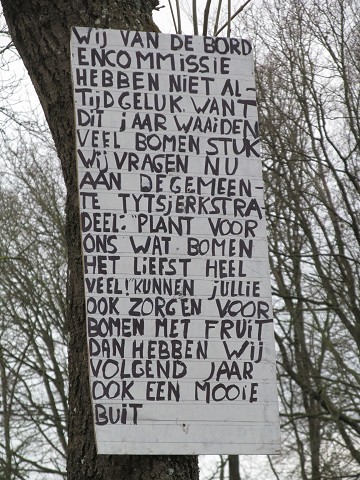 WIJ VAN DE BORD
ENCOMMISSIE
HEBBEN NIET AL-
TIJD GELUK. WANT
DIT JAAR WAAIDEN
VEEL BOMEN STUK
WIJ VRAGEN NU
AAN DE GEMEEN-
TE TYTSJERKSTRA
DEEL: "PLANT VOOR
ONS WAT BOMEN
HET LIEFST HEEL
VEEL! KUNNEN JULLIE
OOK ZORGEN VOOR
BOMEN MET FRUIT
DAN HEBBEN WIJ
VOLGEND JAAR
OOK EEN MOOIE
BUIT